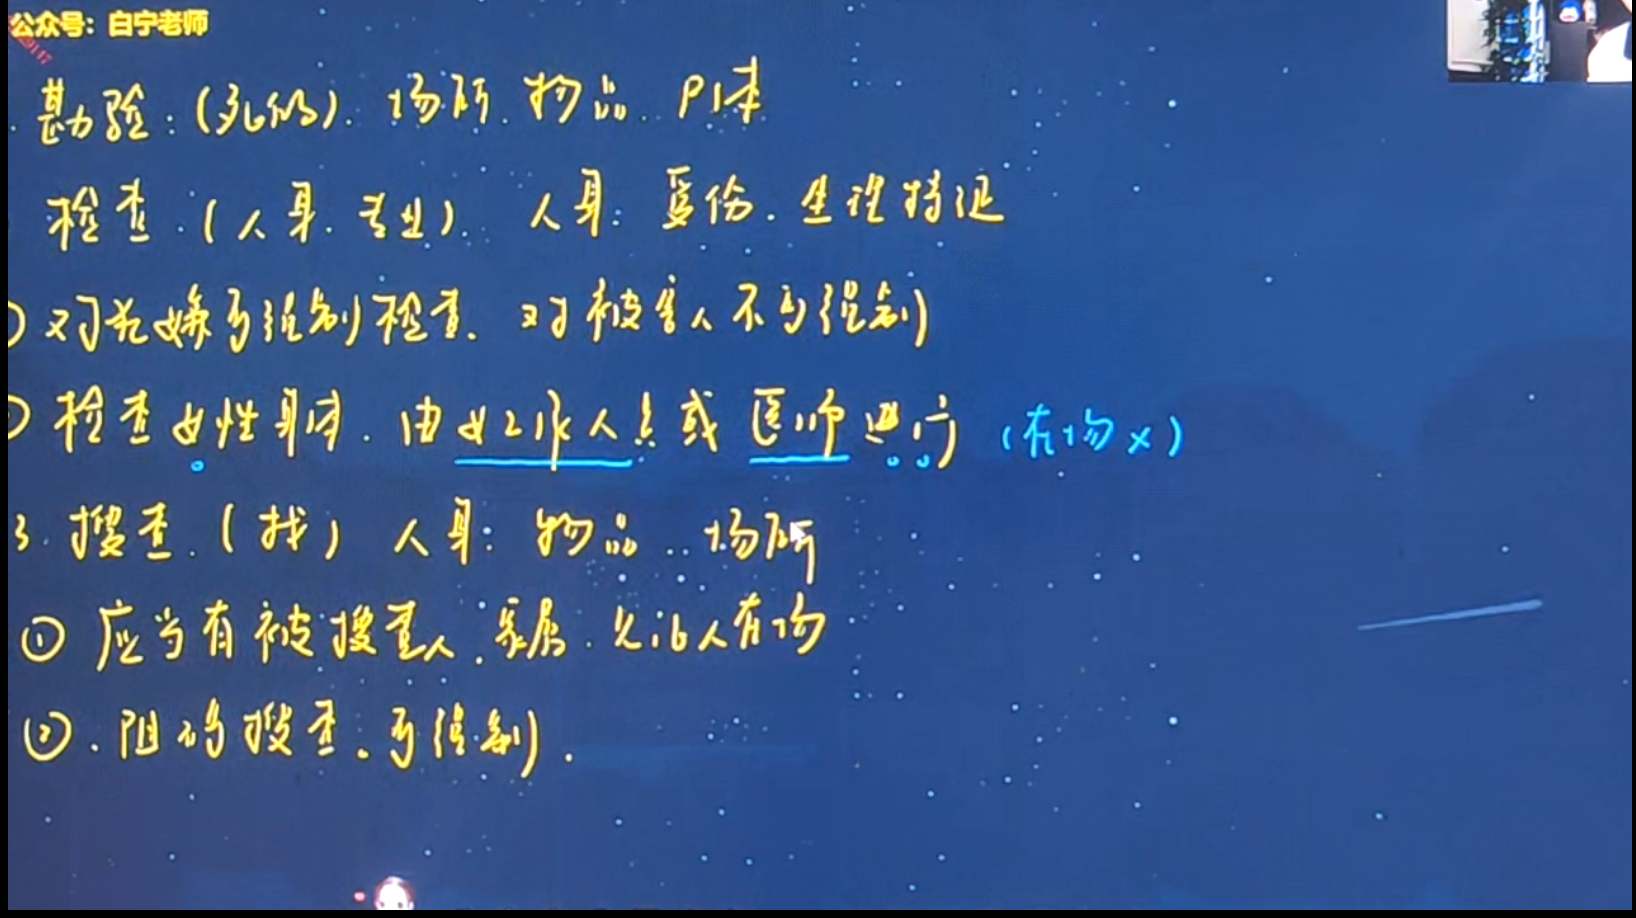 公众号：白宁老师
勘验：(死的). 场所. 物品. 尸体
检查.(人身.专业). 人身：受伤. 生理特征
对犯嫌可强制检查. 对被害人不可强制
检查女性身体. 由女工作人员或医师进行 (在场×)
3. 搜查.(找) 人身：物品.. 场所
① 应当有被搜查人. 家属. 见证人在场
②. 阻碍搜查. 可强制.